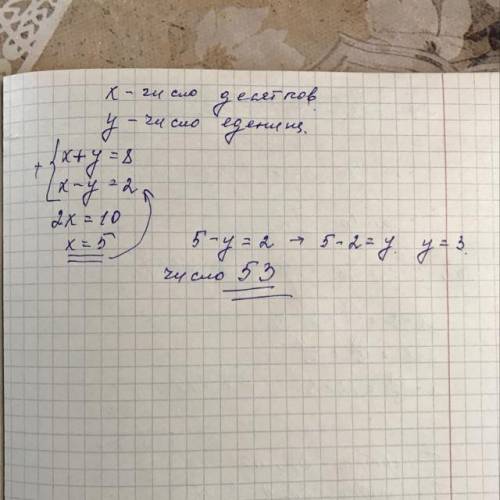 x - число десятков.
y - число едениц.
+ { x+y=8
x-y=2
2x=10
x=5
5-y=2 → 5-2=y. y=3.
число 53